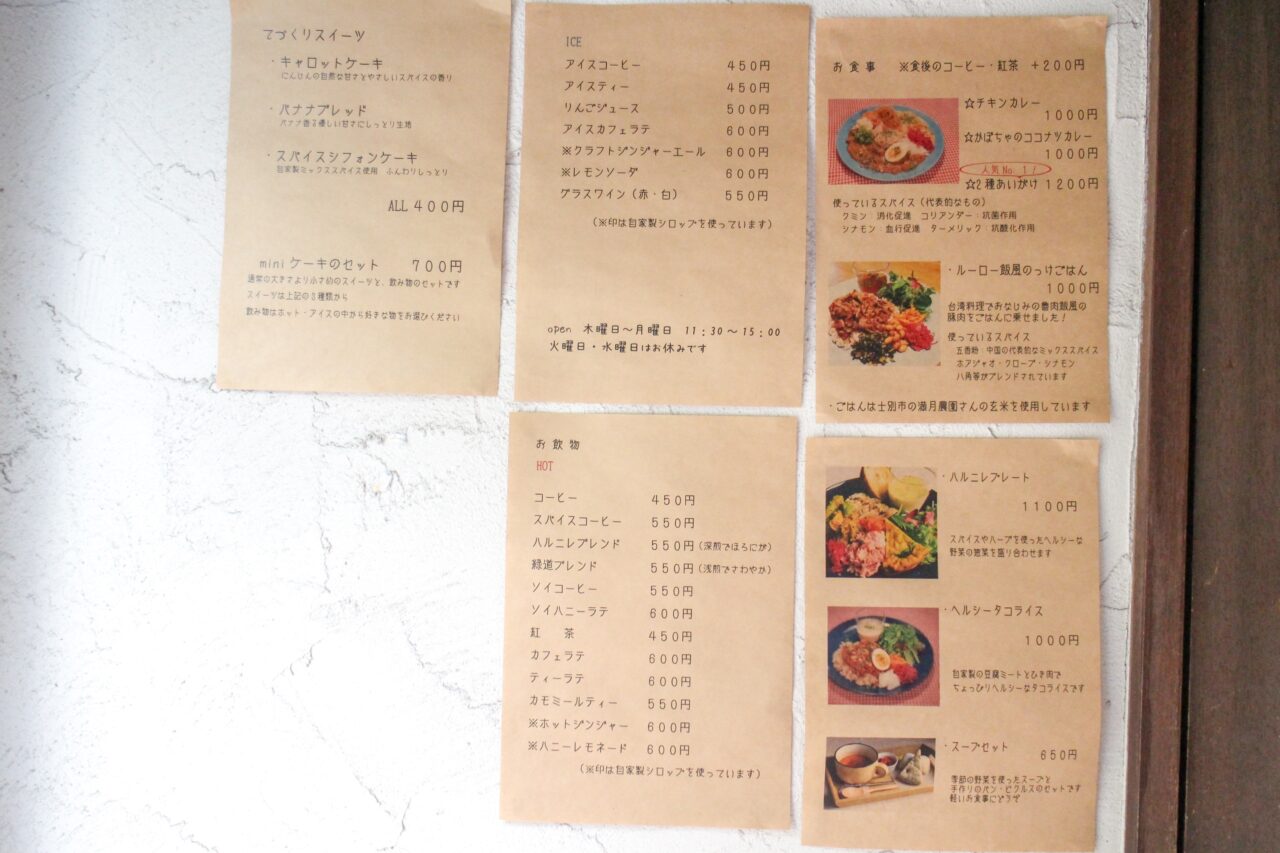 てづくりスイーツ
・キャロットケーキ
にんじんの自然な甘さとやさしいスパイスの香り
・バナナブレッド
バナナ香る優しい甘さにしっとり生地
・スパイスシフォンケーキ
自家製ミックススパイス使用 ふんわりしっとり
ALL 400円
miniケーキのセット 700円
通常の大きさより小さめのスイーツと、飲み物のセットです
スイーツは上記の3種類から
飲み物はホット・アイスの中から好きな物をお選びください
ICE
アイスコーヒー 450円
アイスティー 450円
りんごジュース 500円
アイスカフェラテ 600円
※クラフトジンジャーエール 600円
※レモンソーダ 600円
グラスワイン（赤・白） 550円
（※印は自家製シロップを使っています）
open 木曜日～月曜日 11：30～15：00
火曜日・水曜日はお休みです
お食事 ※食後のコーヒー・紅茶 +200円
☆チキンカレー
1000円
☆かぼちゃのココナツカレー
1000円
人気No.1！
☆2種あいがけ 1200円
使っているスパイス（代表的なもの）
クミン：消化促進 コリアンダー：抗菌作用
シナモン：血行促進 ターメリック：抗酸化作用
・ルーロー飯風のっけごはん
1000円
台湾料理でおなじみの魯肉飯風の
豚肉をごはんに乗せました！
使っているスパイス
五香粉：中国の代表的なミックススパイス
ホアジャオ・クローブ・シナモン
八角等がブレンドされています
・ごはんは士別市の満月農園さんの玄米を使用しています
お飲物
HOT
コーヒー 450円
スパイスコーヒー 550円
ハルニレブレンド 550円（深煎でほろにが）
緑道ブレンド 550円（浅煎でさわやか）
ソイコーヒー 550円
ソイハニーラテ 600円
紅 茶 450円
カフェラテ 600円
ティーラテ 600円
カモミールティー 550円
※ホットジンジャー 600円
※ハニーレモネード 600円
（※印は自家製シロップを使っています）
・ハルニレプレート
1100円
スパイスやハーブを使ったヘルシーな
野菜の惣菜を盛り合わせます
・ヘルシータコライス
1000円
自家製の豆腐ミートとひき肉で
ちょっぴりヘルシーなタコライスです
・スープセット
650円
季節の野菜を使ったスープと
手作りのパン・ピクルスのセットです
軽いお食事にどうぞ